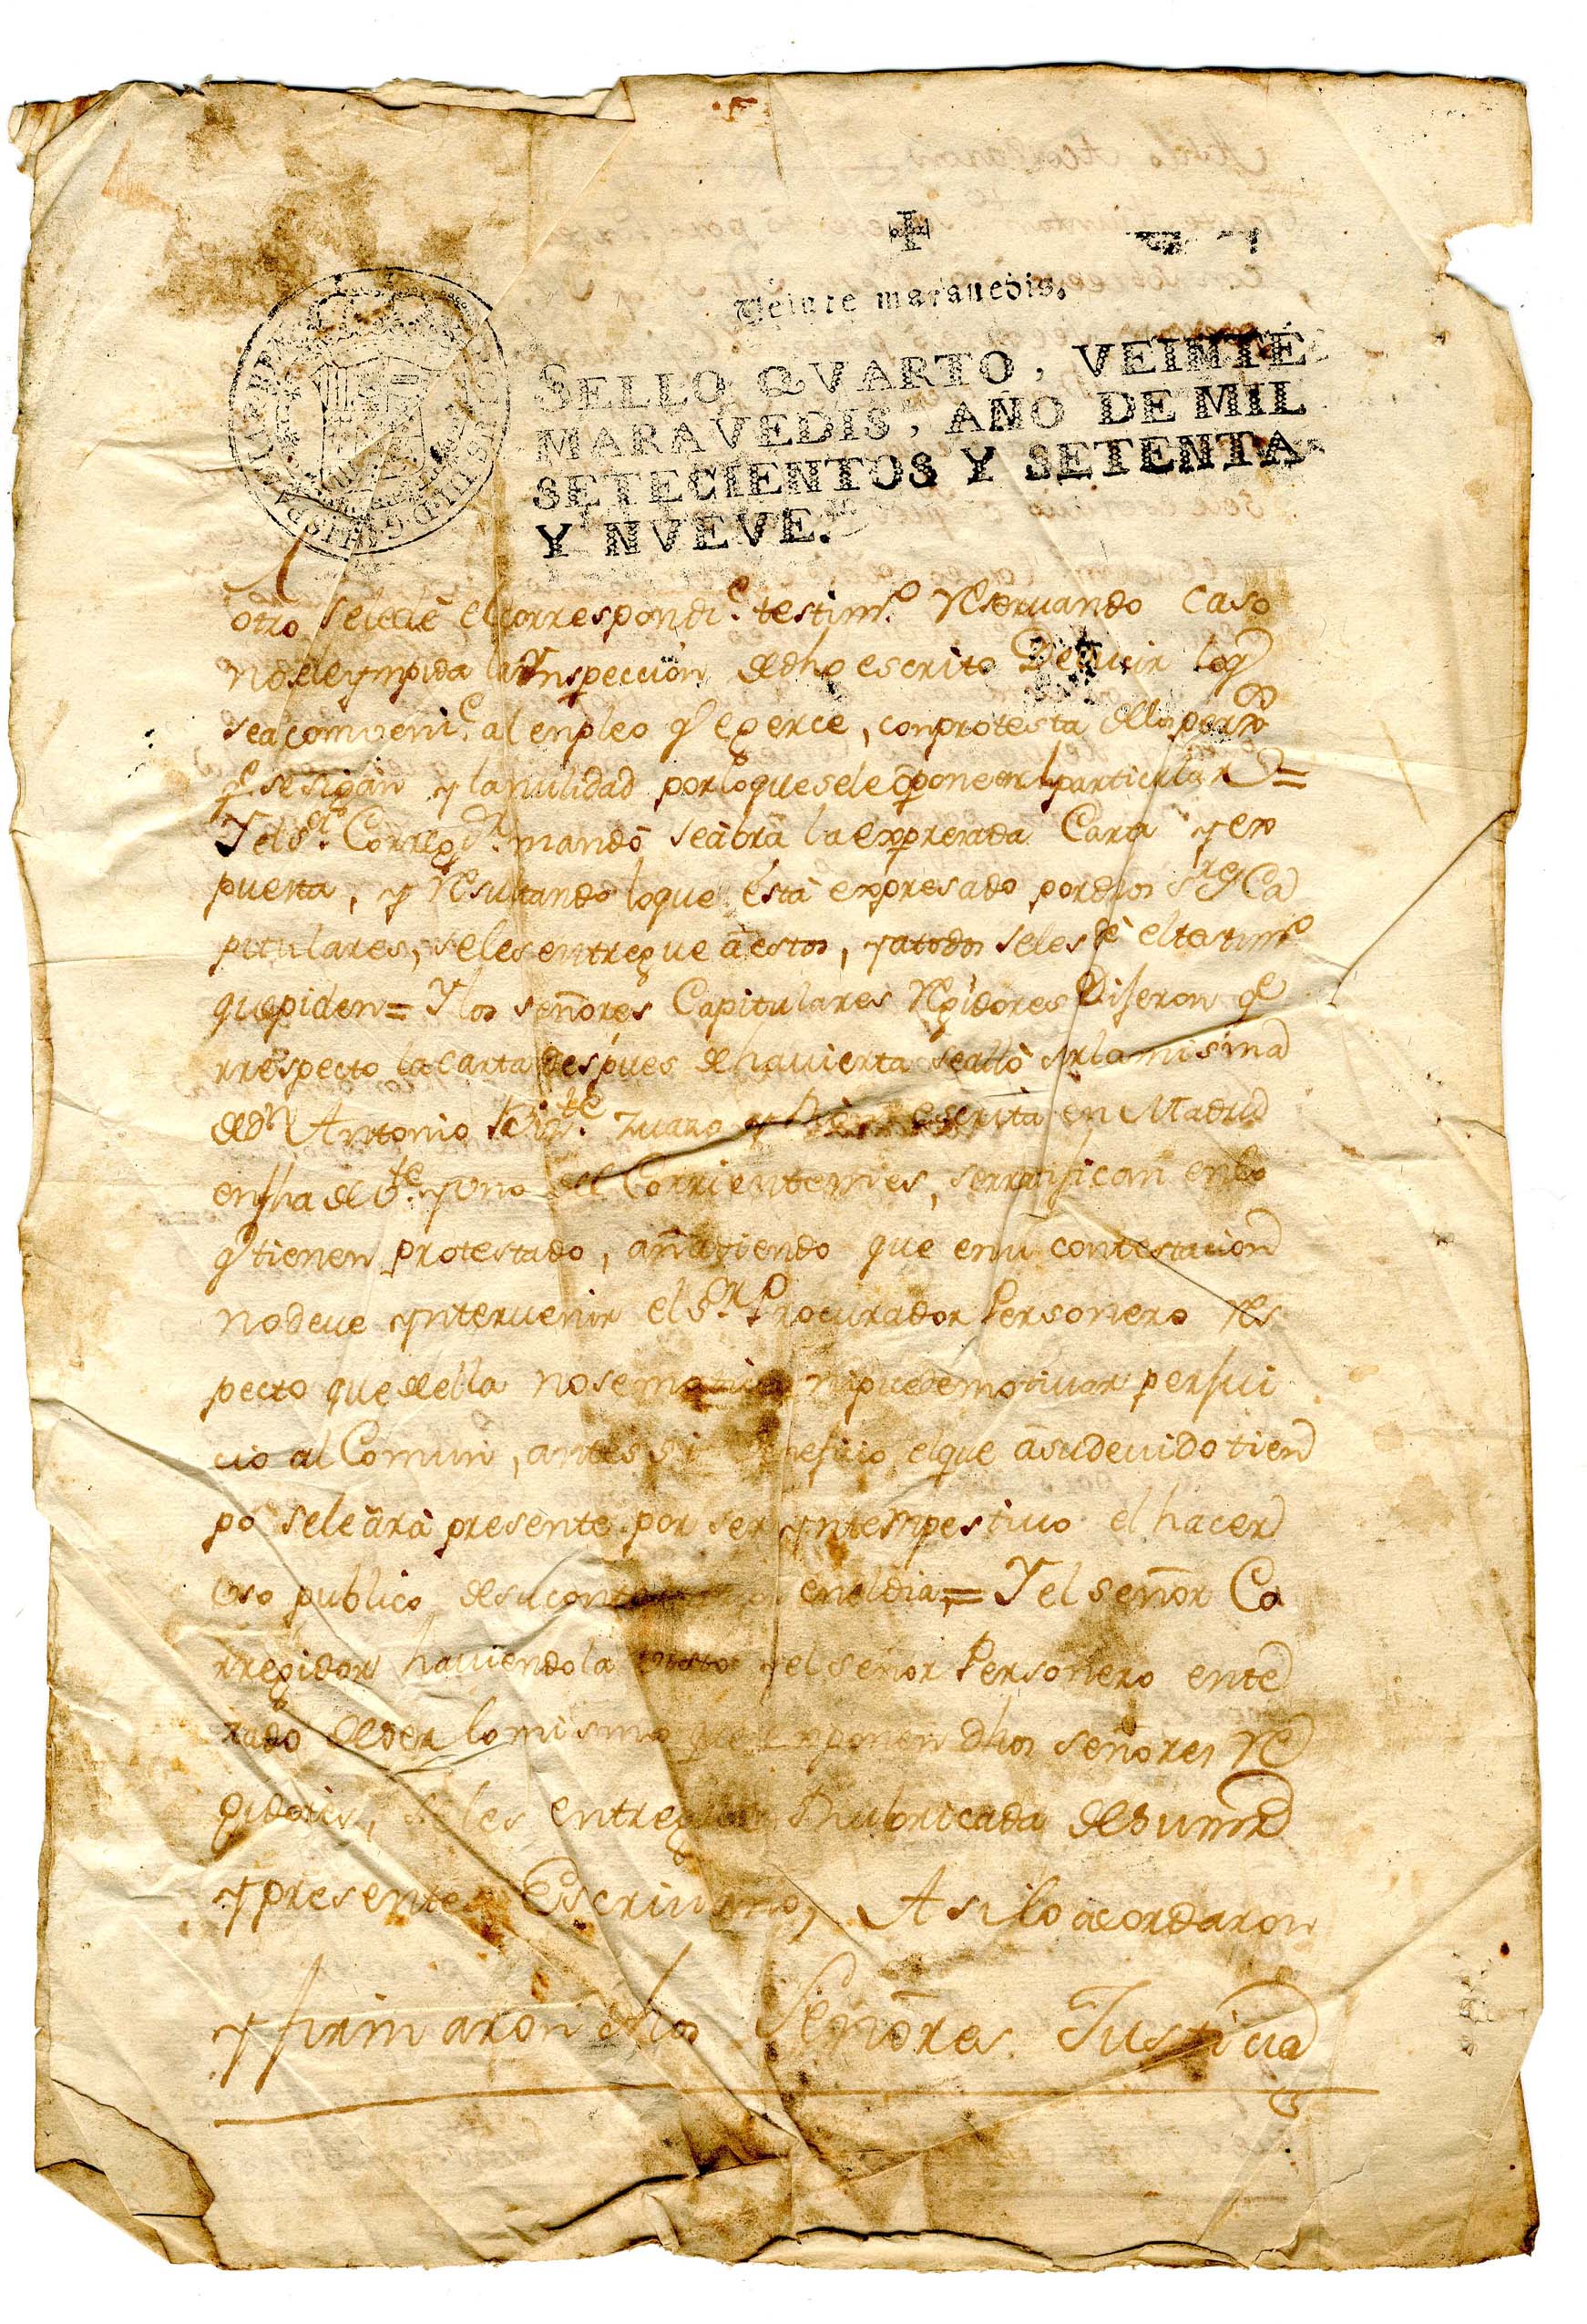 Veinte maravedis.
SELLO QVARTO, VEINTE
MARAVEDIS, AÑO DE MIL
SETECIENTOS Y SETENTA
Y NVEVE.
otro sele dè el correspondte. testimo. Reservando caso
nosele ympida la Ynspección de dho escrito Deducir loq
sea comvente. al enpleo q exerce, con protesta
q se sigan y la nulidad por loque sele opone en el particular =
Y el Sr. Corregr. mandó se abra la expresada Carta y ex
puerta, y Resultando loque está expresado por dhos Sres Ca
pitulares, seles entregue à estos, y atodos seles dè el testimo
que piden = Y los señores Capitulares Rexidores Dijeron qe
rrespecto la carta despues de havierta se alló ser la misma
de Dn Antonio Vizte. Zuazo y escrita en Madrid
en fha de Vte. y uno del Corriente mes, se rratifican en lo
q tienen protestado, añadiendo que en su contestacion
no deve yntervenir el Sr. Procurador Personero Res
pecto que de ella no se motiva ni puede motivar perjui
cio al Comun, antes si beneficio, el que à su devido tiem
po sele ará presente por ser yntempestivo el hacer
uso publico de su en el dia = Y el señor Co
rregidor haviendola visto y el señor Personero ente
rado de ser lo mismo que exponen dhos señores Re
gidores, se les entregue Rubricada de su mrd
y presente Escrivano, Asi lo acordaron
y firmaron dhos Señores Justicia